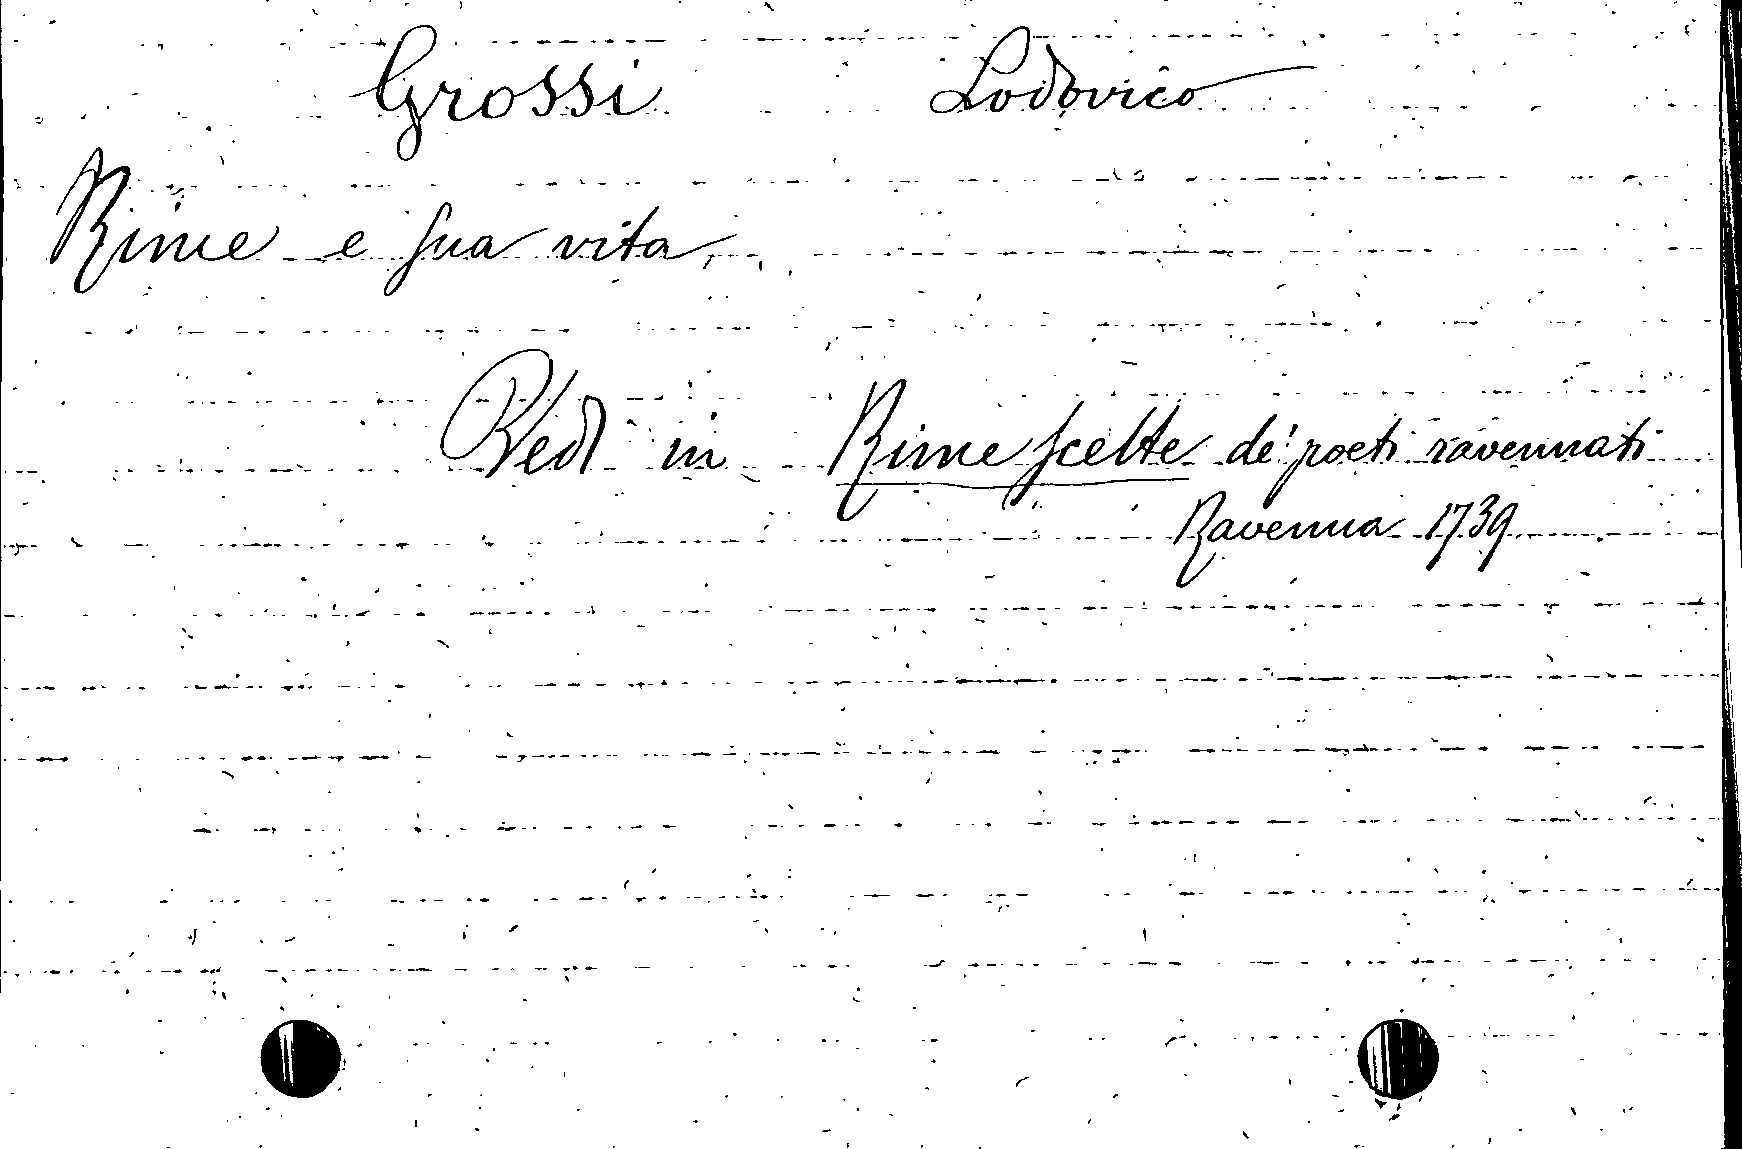 Grossi Lodovico
Rime e sua vita,
Ved in Rime scelte de' poeti ravennati
Ravenna 1739